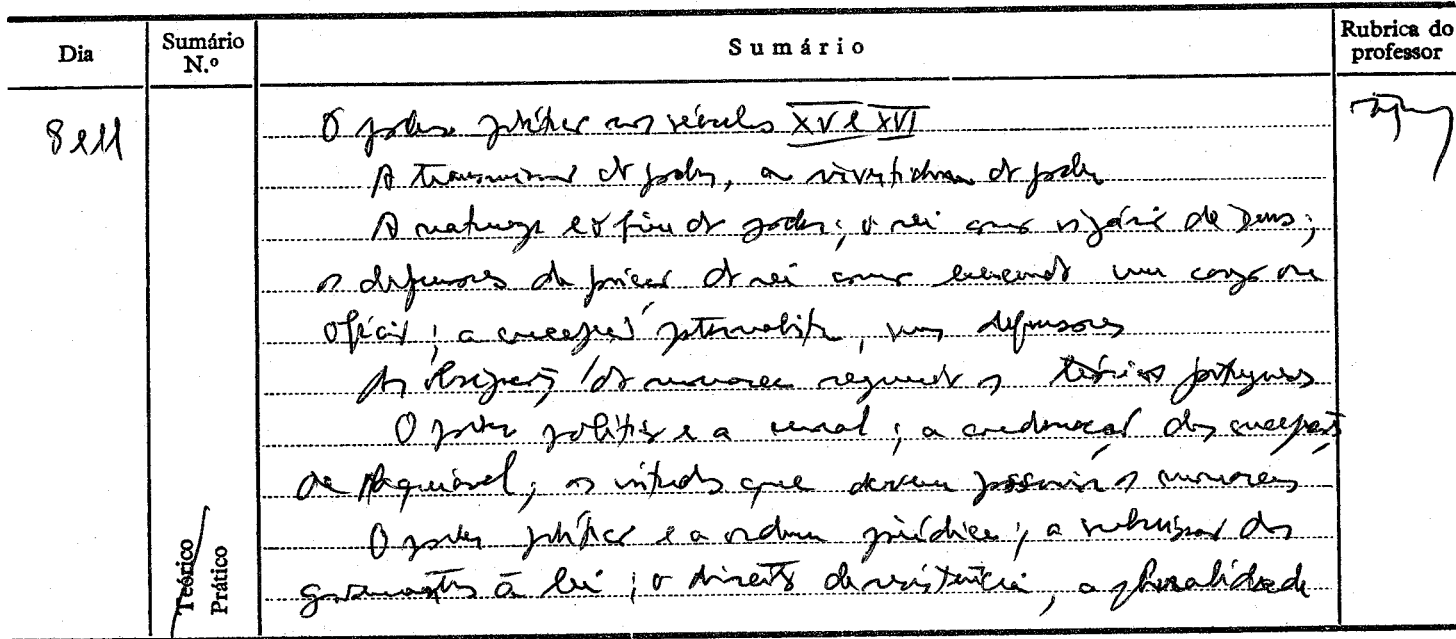 Dia Sumário N.º Sumário Rubrica do professor
8 e 11 O poder político nos séculos XV e XVI
A transmissão do poder, a do poder
A natureza e o fim do poder; o rei como vigário de Deus;
os defensores da do rei como exercendo um cargo ou
ofício; a concepção paternalista, seus defensores
As obrigações do monarca segundo os teóricos portugueses
O poder político e a moral; a condenação das concepções
de Maquiavel; as virtudes que devem possuir os monarcas
O poder político e a ordem jurídica; a submissão dos
governantes à lei; o direito de resistência, a pluralidade
Teórico
Prático